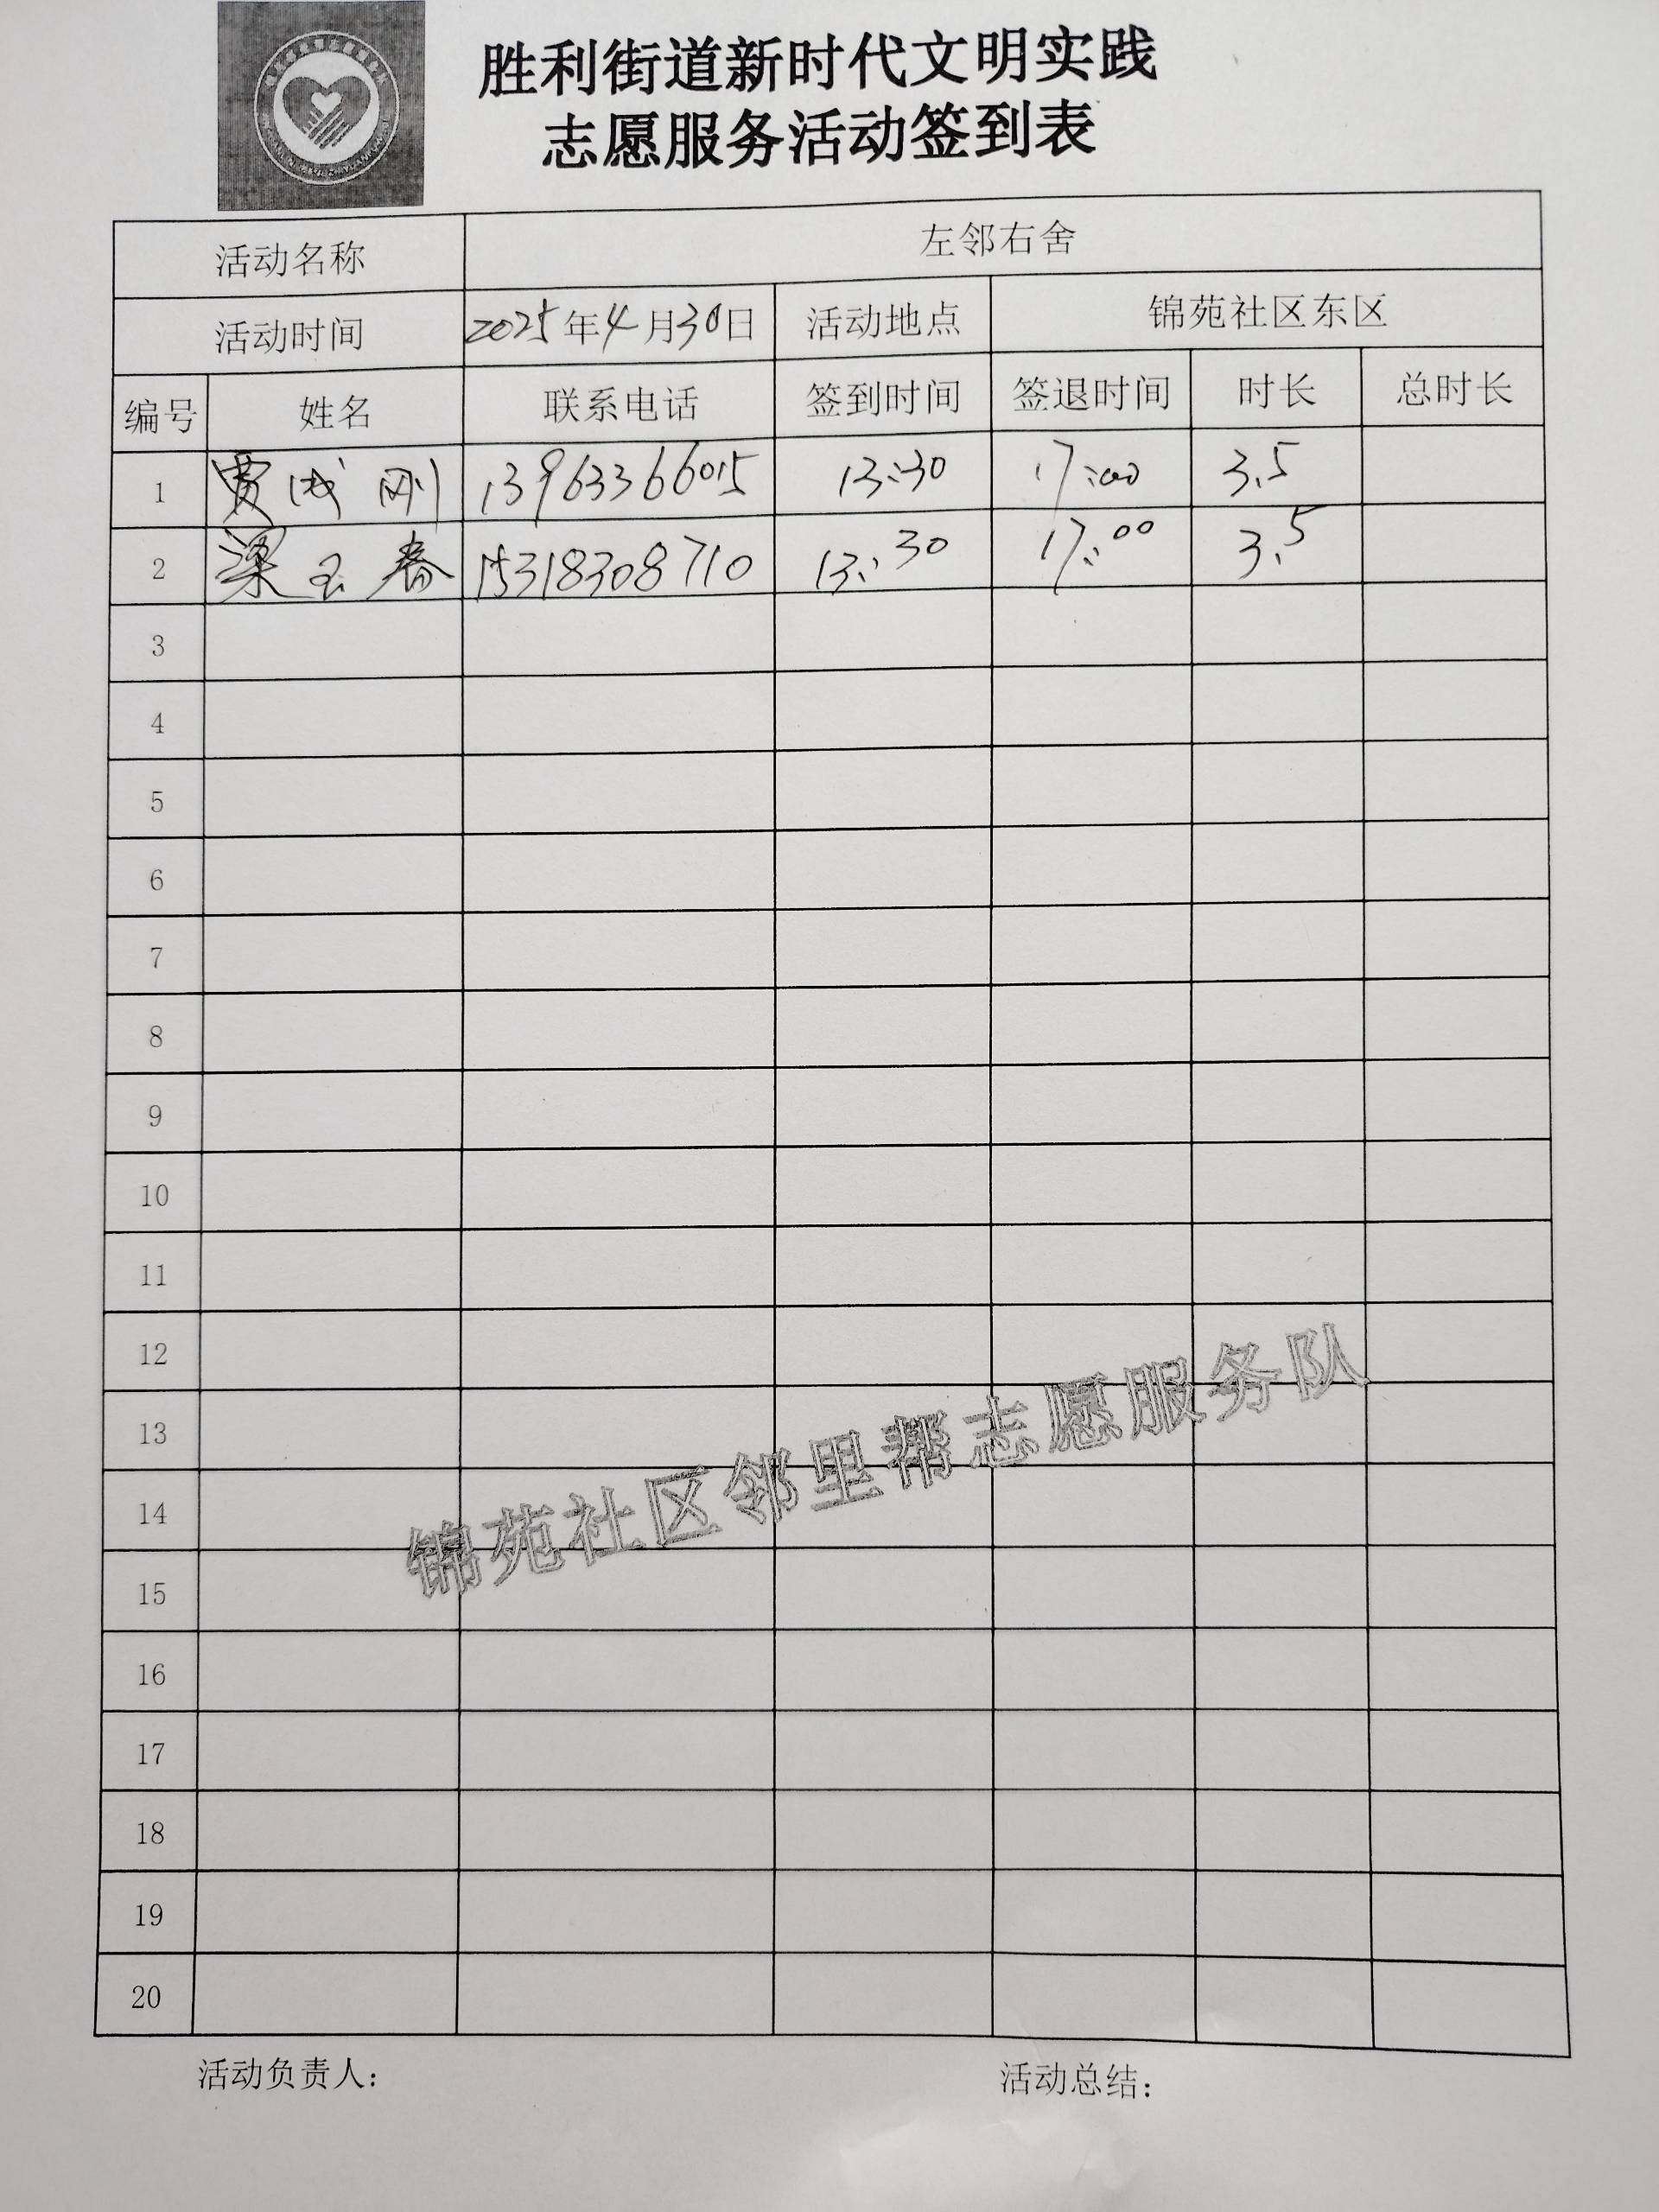 胜利街道新时代文明实践
志愿服务活动签到表
活动名称 左邻右舍
活动时间 2025年4月30日 活动地点 锦苑社区东区
编号 姓名 联系电话 签到时间 签退时间 时长 总时长
1 贾成刚 13963366015 13:30 17:00 3.5
2 梁玉春 15318308710 13:30 17:00 3.5
3
4
5
6
7
8
9
10
11
12
13
14
15
16
17
18
19
20
锦苑社区邻里帮志愿服务队
活动负责人: 活动总结: